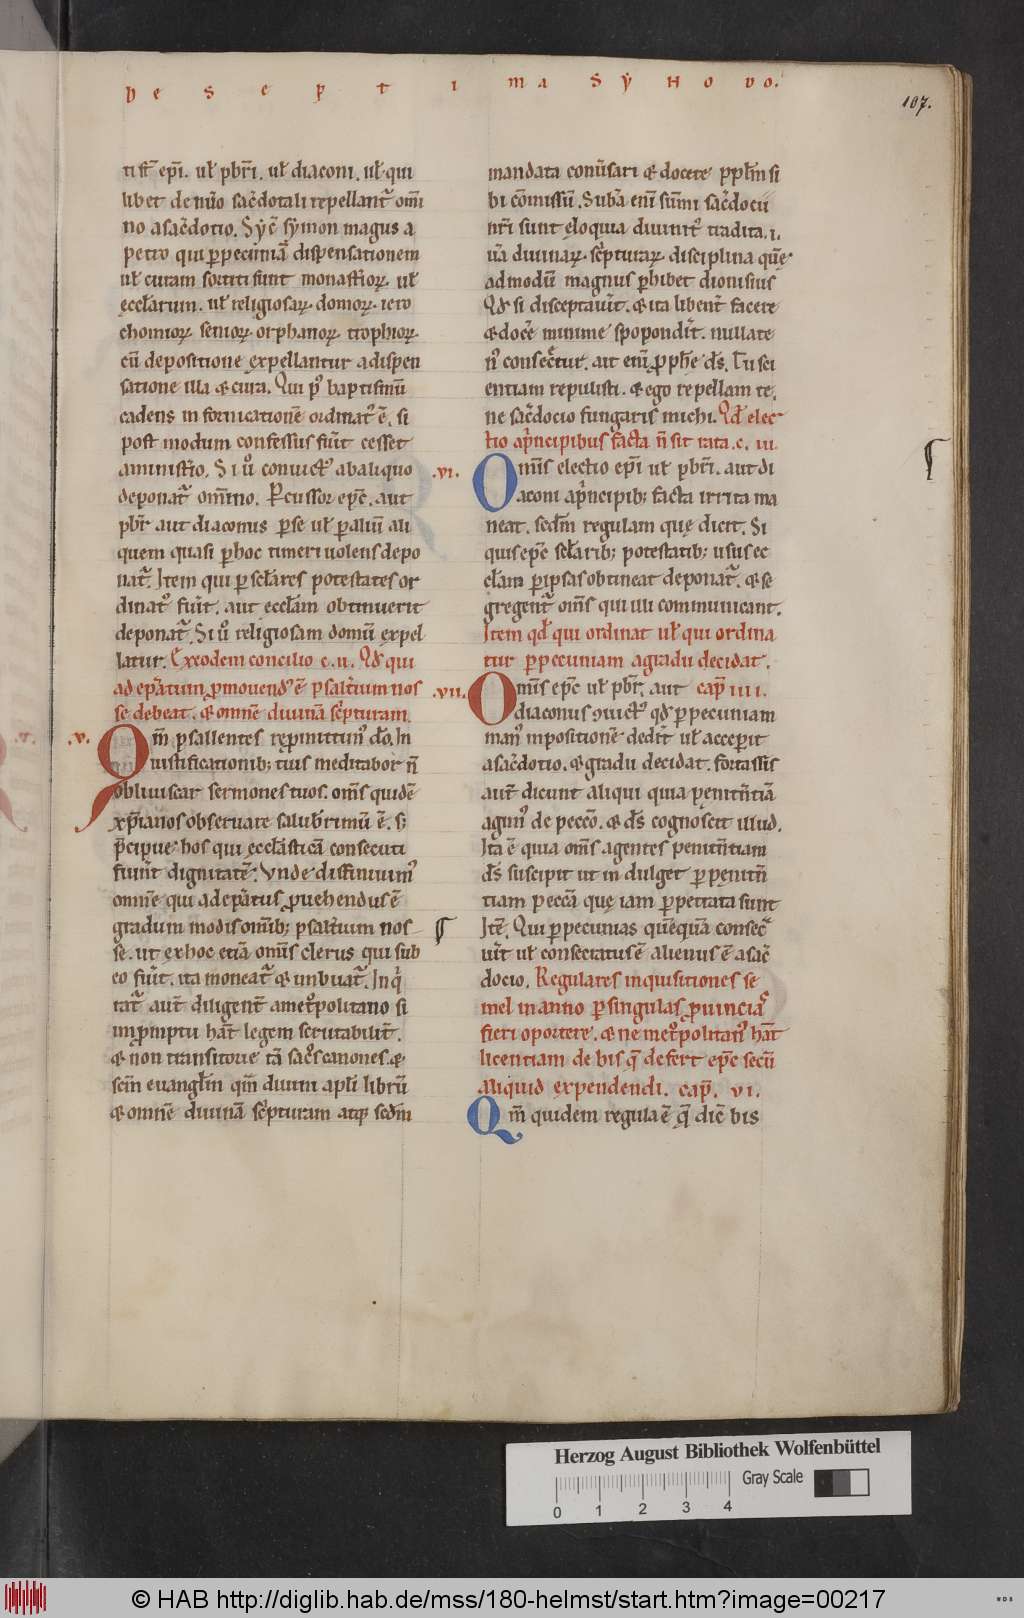 De septima synodo.
107.
tist̄ ep̄i. ul̄ p̄br̄i. ul̄ diaconi. ul̄ qui
libet de num̄o sac̄dotali repellant᷑ om̄i
no a sac̄dotio. Syc̄ symon magus a
petro qui p̱ pecuniā dispensationem
ul̄ curam sortiti sunt monast̄ioꝝ. ul̄
ęccl̄arum. ul̄ religiosaꝝ domoꝝ. iero
chomioꝝ senioꝝ orphanoꝝ trophioꝝ
cū depositione expellantur a dispen
satione illa & cura. Qui pꝰ baptismū
cadens in fornicationē ordinatꝰ ē. si
post modum confessus fūit cesset
a minist̄io. Si ū̊ convictꝰ ab aliquo
deponat᷑ om̄ino. P̱cussor ep̄c. aut
p̄br̄ aut diaconus p̱ se ul̄ p̱ aliū ali
quem quasi p̱ hoc timeri uolens depo
nat᷑. Item qui p̱ sc̄lares potestates or
dinatꝰ fūit. aut eccl̄am obtinuerit
deponat᷑. Si ū̊ religiosam domū expel
latur. Ex eodem concilio c. u. Qd̄ qui
ad ep̄atum ꝓmouendꝰ ē psalt̄ium nos
se debeat. & omnē diuinā sc̄pturam.
.v. Qm̄ psallentes rep̱mittimꝰ dō. In
iustificationib; tuis meditabor n̄
obliuiscar sermones tuos. om̄s quidē
xp̄ianos obseruare salub̄rimū ē. s;
p̄cipue hos qui ęccl̄asticā consecuti
fuint̄ dignitatē. Vnde diffinimꝰ
omnē qui ad ep̄atus ꝓuehendus ē
gradum modis om̄ib; psalt̄ium nos
se. ut ex hoc etiā om̄s clerus qui sub
eo fūit. ita moneat᷑ & inbuat᷑. Inq̇
rat᷑ aut̄ diligent̄ a met̊politano si
in ꝓmptu hāt legem scrutabilit̄.
& non transitorie tā sac̊s canones. &
scm̄ euangl̄m qm̄ diuini apl̄i librū
& omnē diuinā sc̄pturam atq; sed̄m
mandata conūsari & docere ppl̄m si
bi cōmissū. Suba enī sūmi sac̄docii
nr̄i sunt ęloquia diuinitꝰ tradita. i.
ūa diuinaꝝ. sc̄pturaꝝ disciplina quę
admodū magnus p̱hibet dionisius
Qd̄ si disceptaūit. & ita libent̄ facere
& docē minime spopondit̄. nullate
nꝰ consec̄tur. ait enī ꝓph̄e ds̄. Tu sci
entiam repulisti. & ego repellam te.
ne sac̄docio fungaris michi. Qd̄ elec
tio a p̄ncipibus facta n̄ sit rata. c. iii.
.vi. Om̄is electio ep̄i ul̄ p̄br̄i. aut di
aconi a p̄ncipib; facta irrita ma
neat. sed̄m regulam quę dicit. Si
quis ep̄c sc̄larib; potestatib; usus ec
cl̄am p̱ ipsas obtineat deponat᷑. & se
gregent᷑ om̄s qui illi communicant.
Item qd̄ qui ordinat ul̄ qui ordina
tur p̱ pecuniam a gradu decidat.
cap̄ iiii.
.vii. Om̄is ep̄c ul̄ p̄br̄. aut
diaconus ꝯuictꝰ qd̄ p̱ pecuniam
manꝰ inpositionē dedit̄ ul̄ acceperit
a sac̄dotio. & gradu decidat. fortassis
aut̄ dicunt aliqui quia penit̄ntiā
agimꝰ de peccō. & ds̄ cognoscit illud.
Ita ē quia om̄s agentes penit̄ntiam
ds̄ suscipit ut indulget p̱ pęnit̄n
tiam peccā quę iam p̱petrata sunt
Itē. Qui p̱ pecunias quēquā consec᷑
uit̄ ul̄ consecratus ē alienus ē a sac̄
docio. Regulares inquisitiones se
mel in anno p̱ singulas ꝓuincias
fieri oportere. & ne met̊politanꝰ hāt
licentiam de his q̄ defert ep̄c secū
aliquid expendendi. cap̄. vi.
Qm̄ quidem regula ē q̄ dic̄ bis
Herzog August Bibliothek Wolfenbüttel
Gray Scale
0 1 2 3 4
© HAB http://diglib.hab.de/mss/180-helmst/start.htm?image=00217